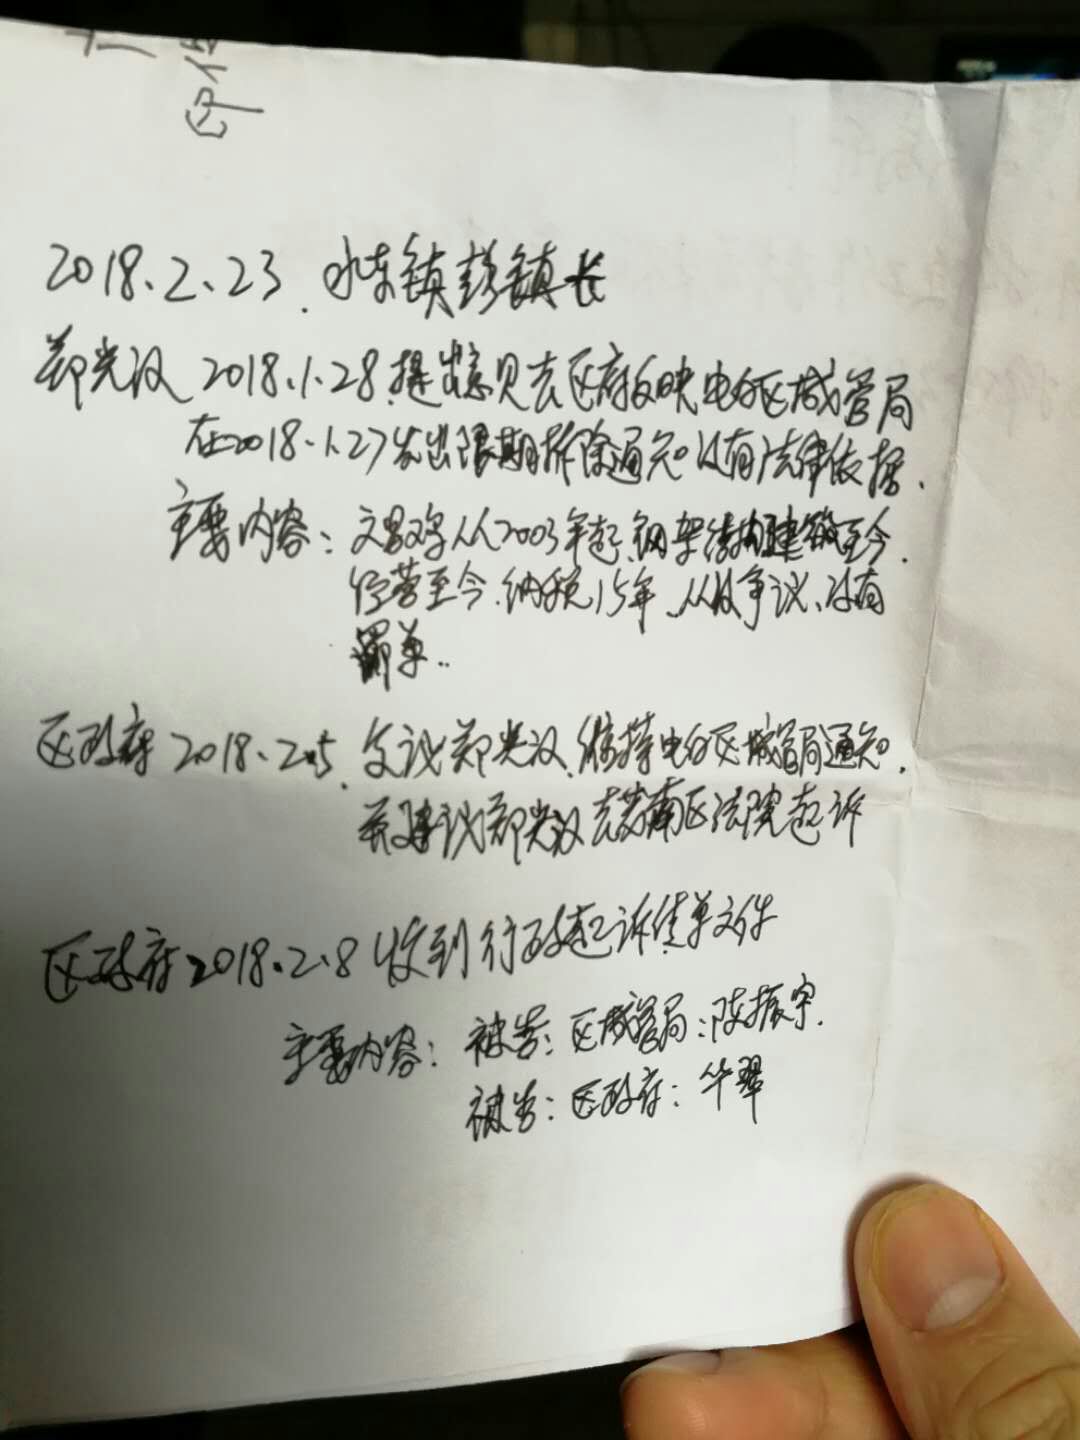 2018.2.23. 水东镇彭镇长
郑光汉 2018.1.28.提出意见去区府反映电白区城管局
在2018.1.27发出限期拆除通知。没有法律依据.
主要内容: 从2003年起、钢架结构建筑至今.
经营至今.纳税15年.从没争议、没有
罚单..
区政府 2018.2.5. 郑光汉.维持电白区城管局通知.
并建议郑光汉去茂南区法院起诉
区政府 2018.2.8 收到行政起诉清单文件
主要内容: 被告:区城管局:陈振宇.
被告:区政府:华翠